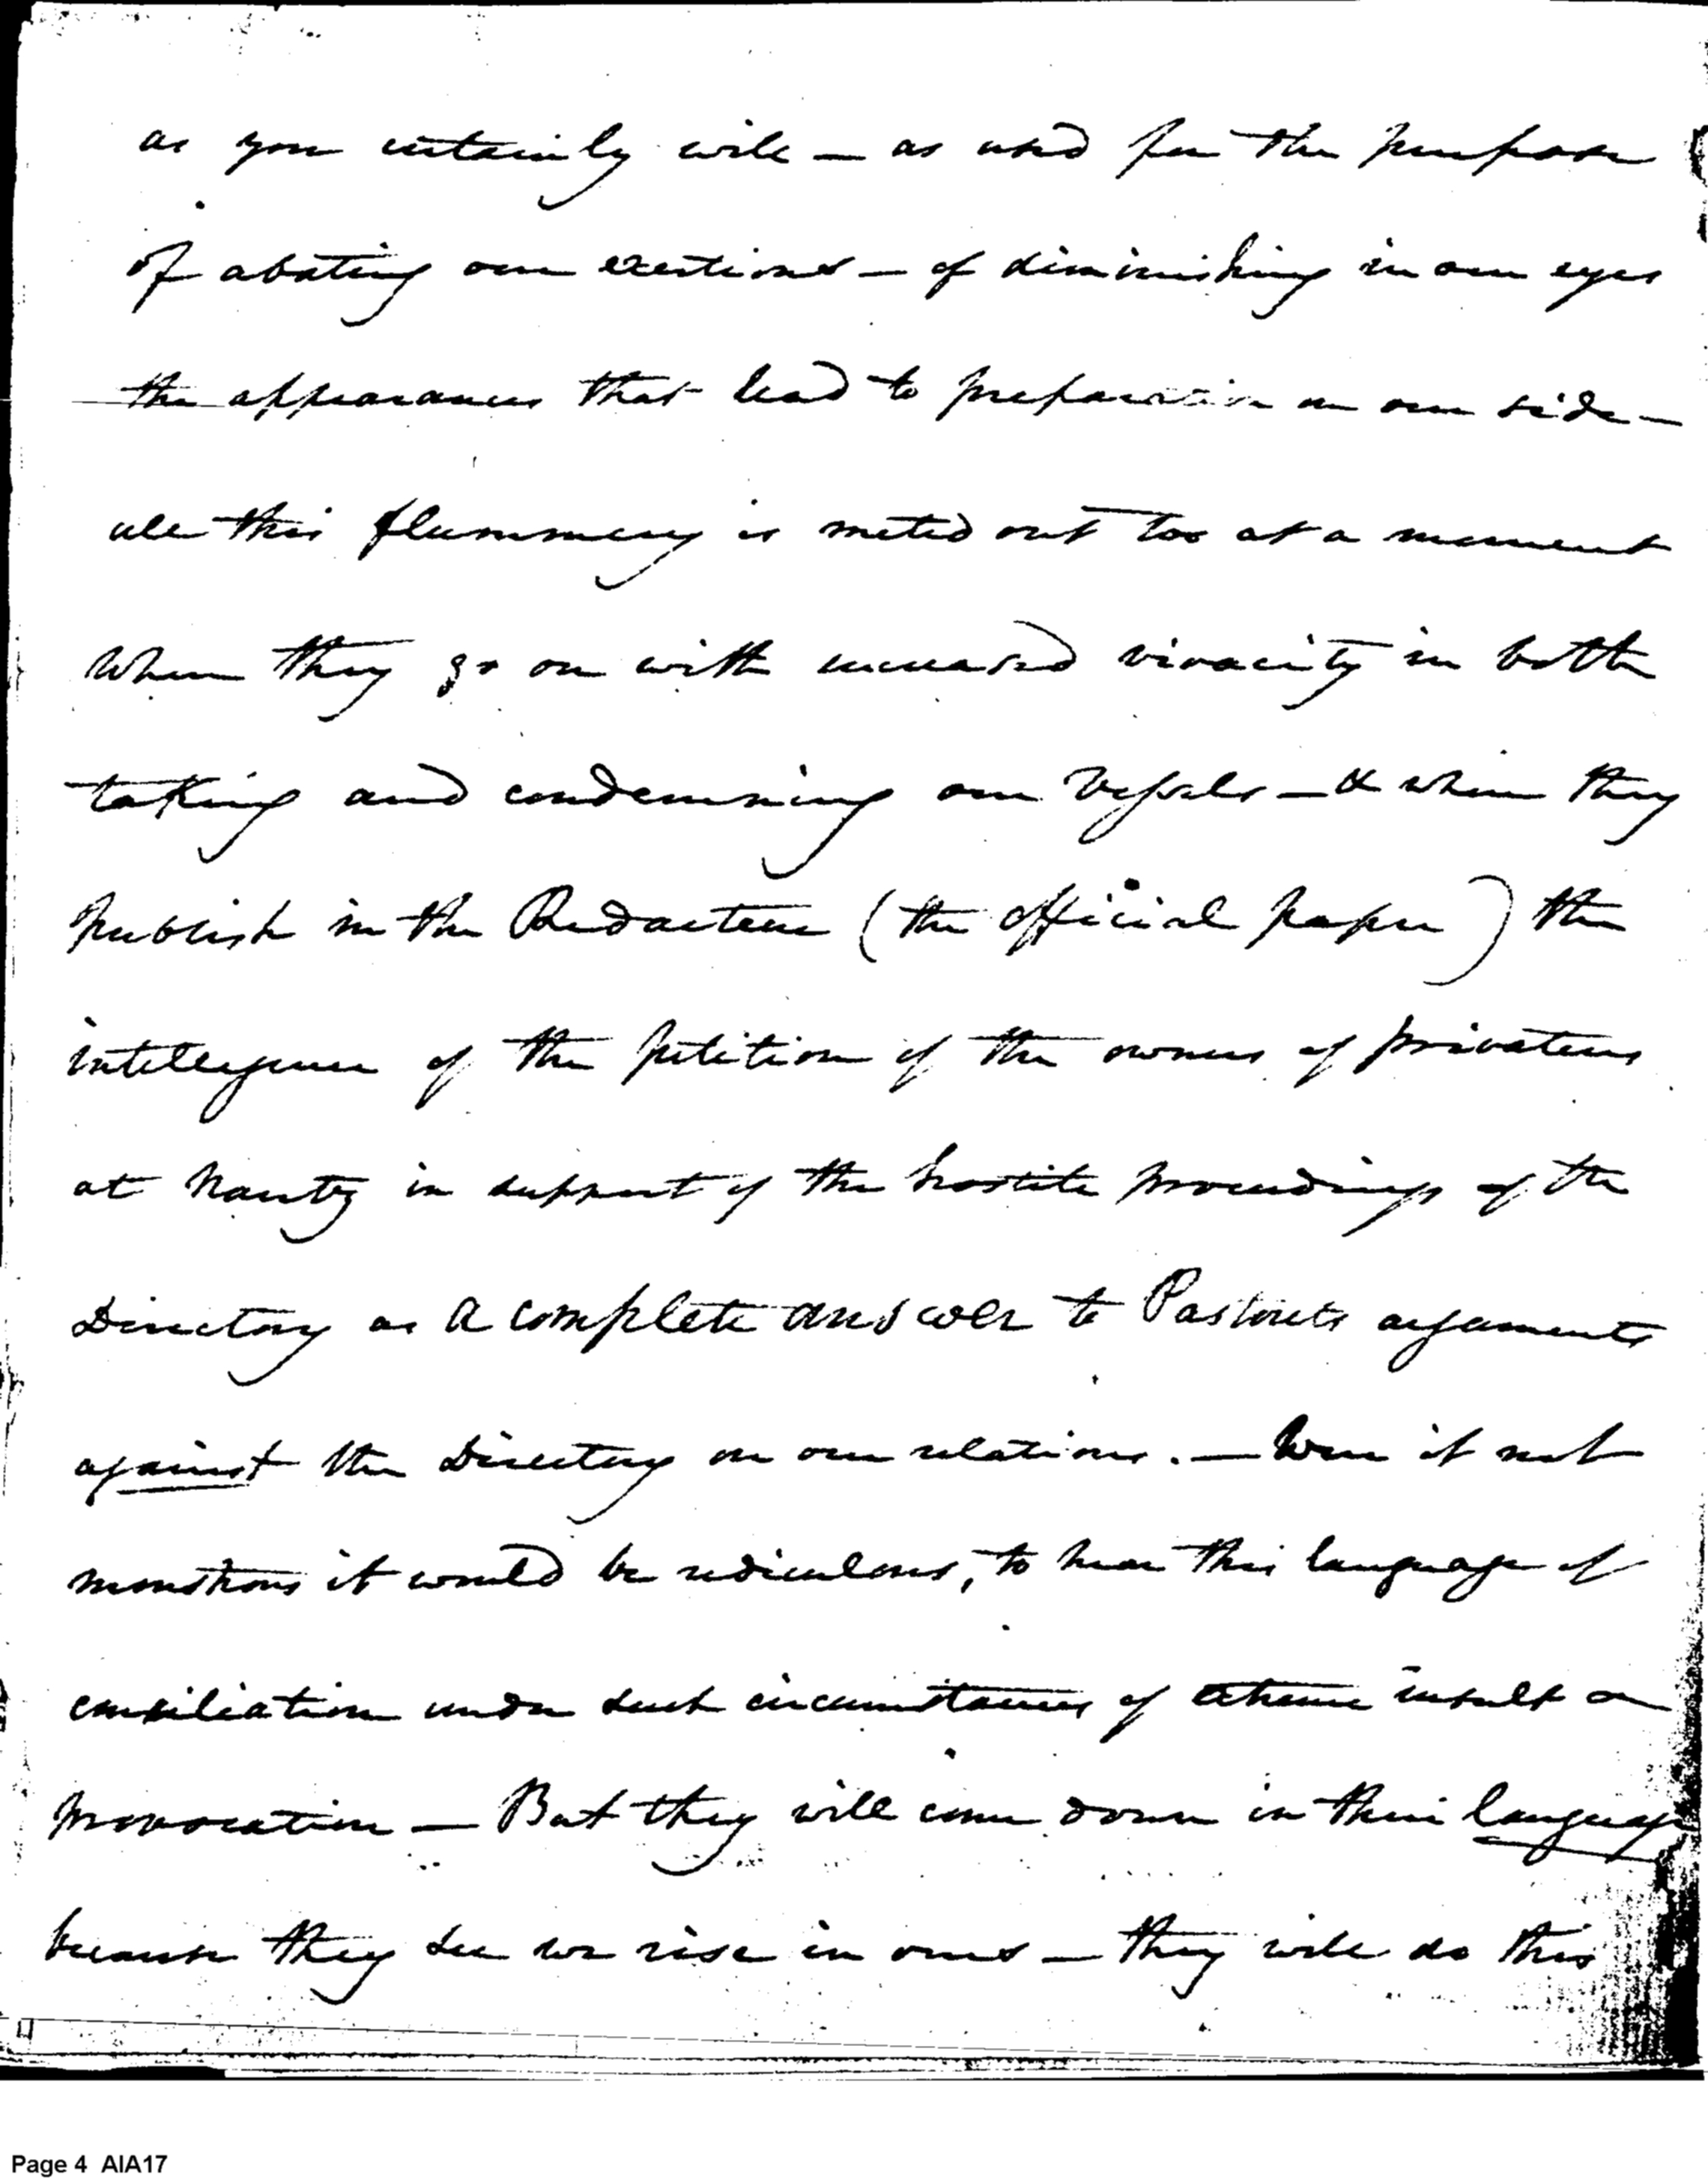 as you certainly will — as used for the purpose
of abating our exertions — of diminishing in our eyes
the appearances that lead to preparation on our side —
all this flummery is meted out too at a moment
when they go on with increased vivacity in both
taking and condemning our vessels — & when they
publish in the Redacteur (the official paper) the
intelligence of the petition of the owners of privateers
at Nantz in support of the hostile proceedings of the
Directory as a complete answer to Pastorets arguments
against the Directory on our relations. — Were it not
monstrous it would be rediculous, to hear this language of
conciliation under such circumstances of extreme insult or
provocation — But they will come down in their language
because they see we rise in ours — they will do this
Page 4 AIA17